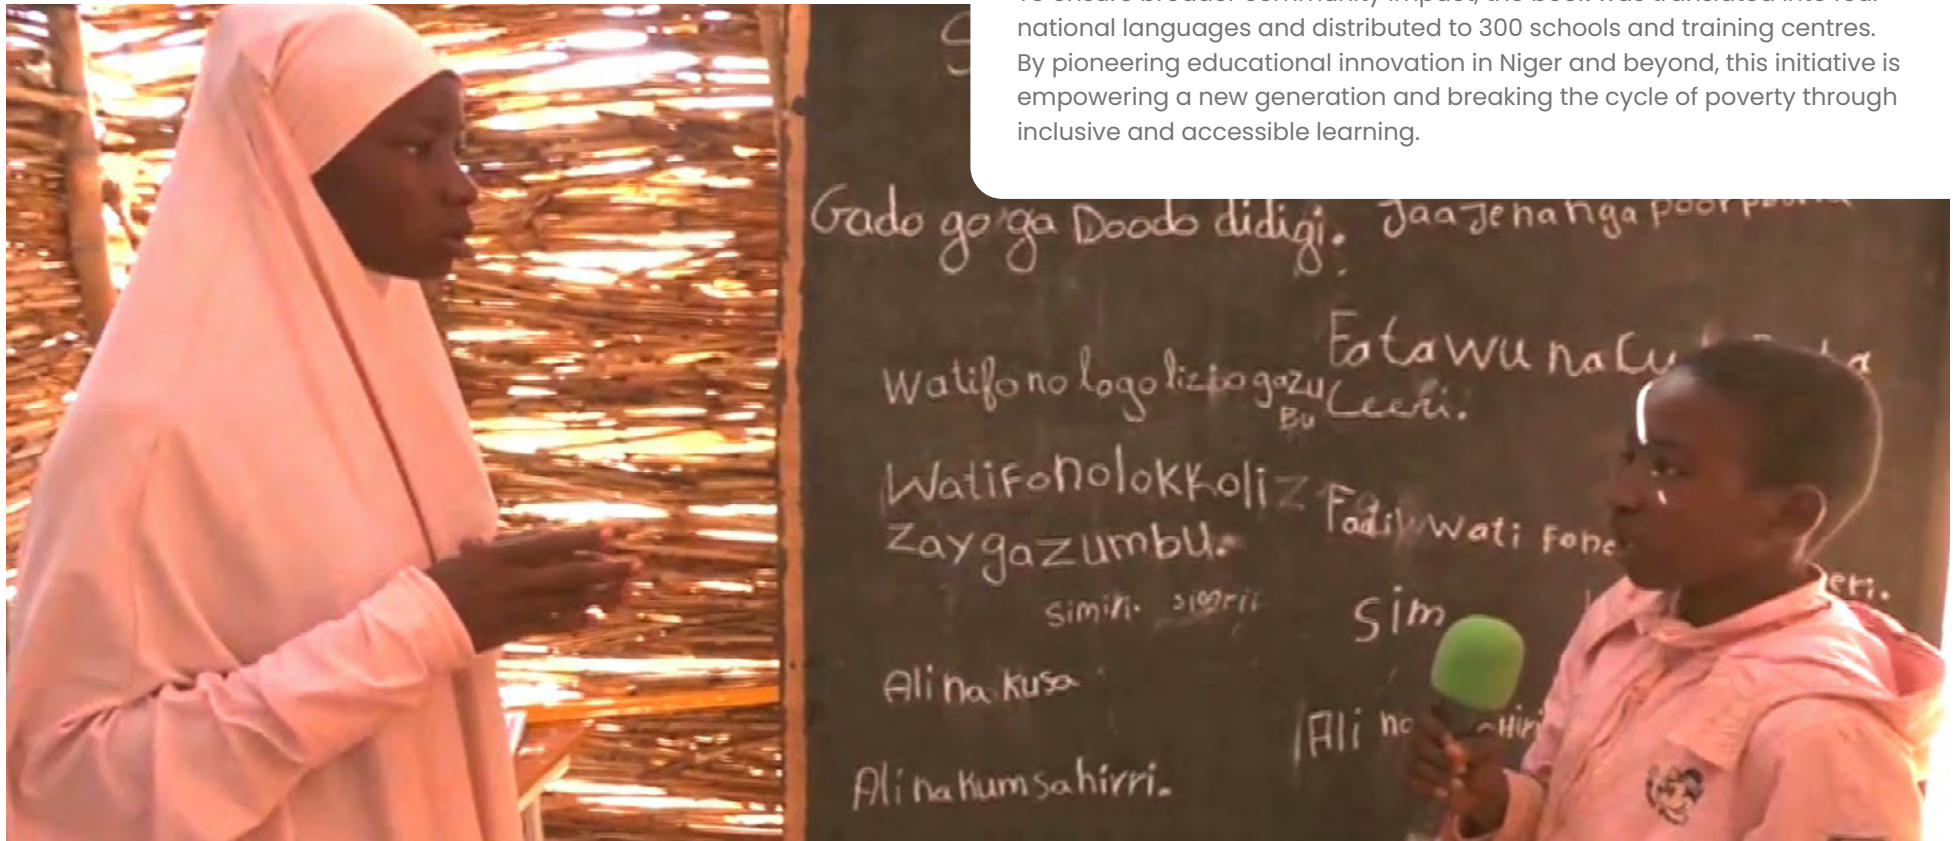 national languages and distributed to 300 schools and training centres.
By pioneering educational innovation in Niger and beyond, this initiative is
empowering a new generation and breaking the cycle of poverty through
inclusive and accessible learning.
Gado go ga Doodo didigi.
Jaa Je na nga
Watifo no logo
gazu
Bu
Fatawu na
Ceeri.
Watifonolokkoliz
Zaygazumbu.
wati Fone
eri.
Simiri.
Sim
Ali na kusa
Ali na
Ali na kumsahirri.